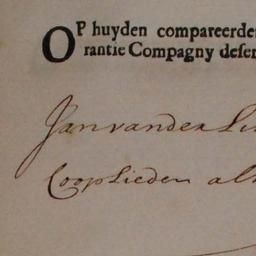 OP huyden compareerde
rantie Compagny deser
Jan vander Li
Cooplieden al